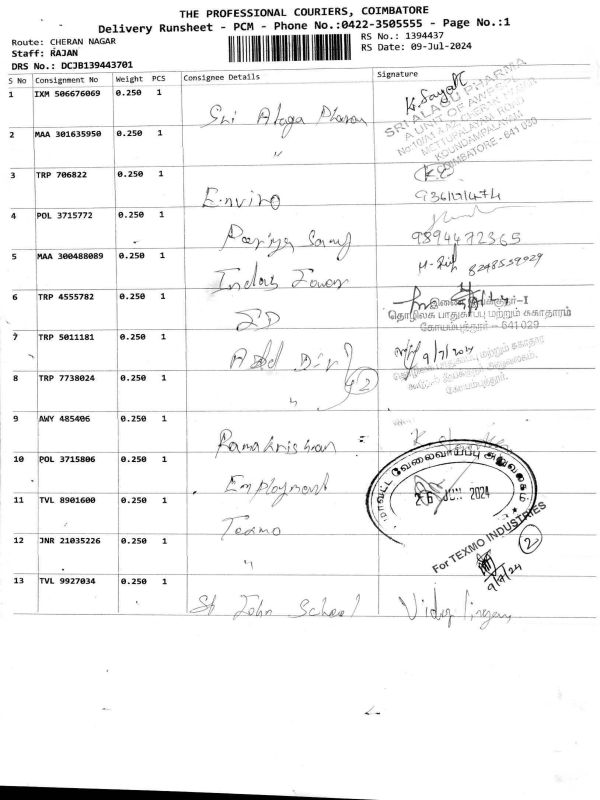 THE PROFESSIONAL COURIERS, COIMBATORE
Delivery Runsheet - PCM - Phone No.:0422-3505555 - Page No.:1
Route: CHERAN NAGAR
RS No.: 1394437
Staff: RAJAN
RS Date: 09-Jul-2024
DRS No.: DCJB139443701
S No Consignment No Weight PCS Consignee Details Signature
1 IXM 506676069 0.250 1
SRI ALAGU PHARMA
A UNIT OF
METTUPALAYAM ROAD
KOUNDAMPALAYAM
COIMBATORE - 641 030
2 MAA 301635950 0.250 1 "
3 TRP 706822 0.250 1 Enviro
4 POL 3715772 0.250 1
9894472365
5 MAA 300488089 0.250 1 Indus Tower
8248559029
6 TRP 4555782 0.250 1
தொழிலக பாதுகாப்பு மற்றும் சுகாதாரம்
கோயம்புத்தூர் - 641 029
7 TRP 5011181 0.250 1
8 TRP 7738024 0.250 1 " 2
9 AWY 485406 0.250 1 Ramakrishnan
10 POL 3715806 0.250 1 Employment
மாவட்ட வேலைவாய்ப்பு அலுவலகம்
26 JUN 2024
11 TVL 8901600 0.250 1 Texmo
For TEXMO INDUSTRIES
12 JNR 21035226 0.250 1 " 2
9/7/24
13 TVL 9927034 0.250 1 St John School